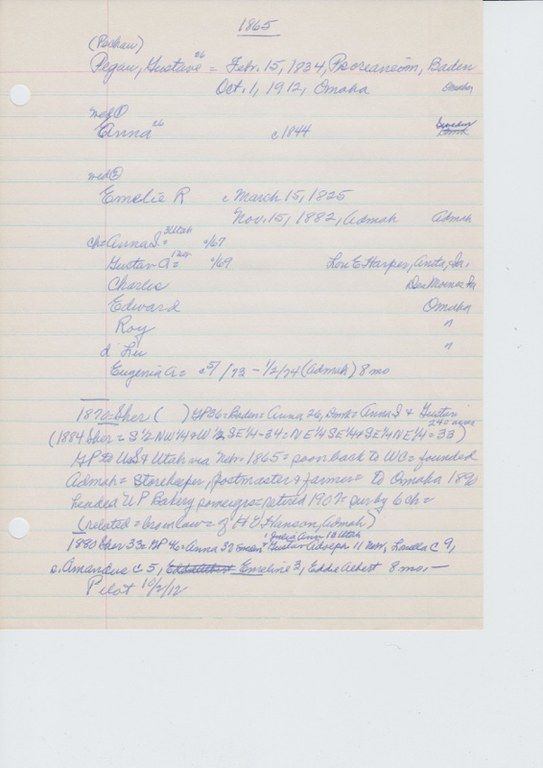 1865
(Pechau)
Pegau, Gustave = Feb. 15, 1834, Baden
Oct. 1, 1912, Omaha Omaha
med ①
Anna c 1844
med ②
Emelie R c March 15, 1825
Nov. 15, 1882, Admah Admah
ch = Anna I = 3 Utah c/67
Gustav A = 1 Nov. c/69 Lou E Harper, Anita, Ia.
Charles Des Moines Ia
Edward Omaha
Roy "
d Lu "
Eugenia A = c 5/ /73 - 1/2/74 (Admah) 8 mo
1870 = Sher ( ) GP 36 = Baden = Anna 26, = Anna I & Gustav
240 acres
(1884 Sher = S 1/2 NW 1/4 & W 1/2 SE 1/4 - 34 = NE 1/4 SE 1/4 & SE 1/4 NE 1/4 = 33)
GP to US & Utah via Nebr. 1865 = soon back to WC = founded
Admah = Storekeeper, postmaster & farmer = to Omaha 1890
headed U P Bakery = retired 1907 = sur by 6 ch =
(related = bro in law = of H C Hanson, Admah)
1880 Sher 33 = GP 46 = Anna 37 Julia Ann 13 Utah Gustav Adolph 11 Nebr, C 9,
s. Amandus C 5, Emeline 3, Eddie Albert 8 mo. —
Pilot 10/2/12